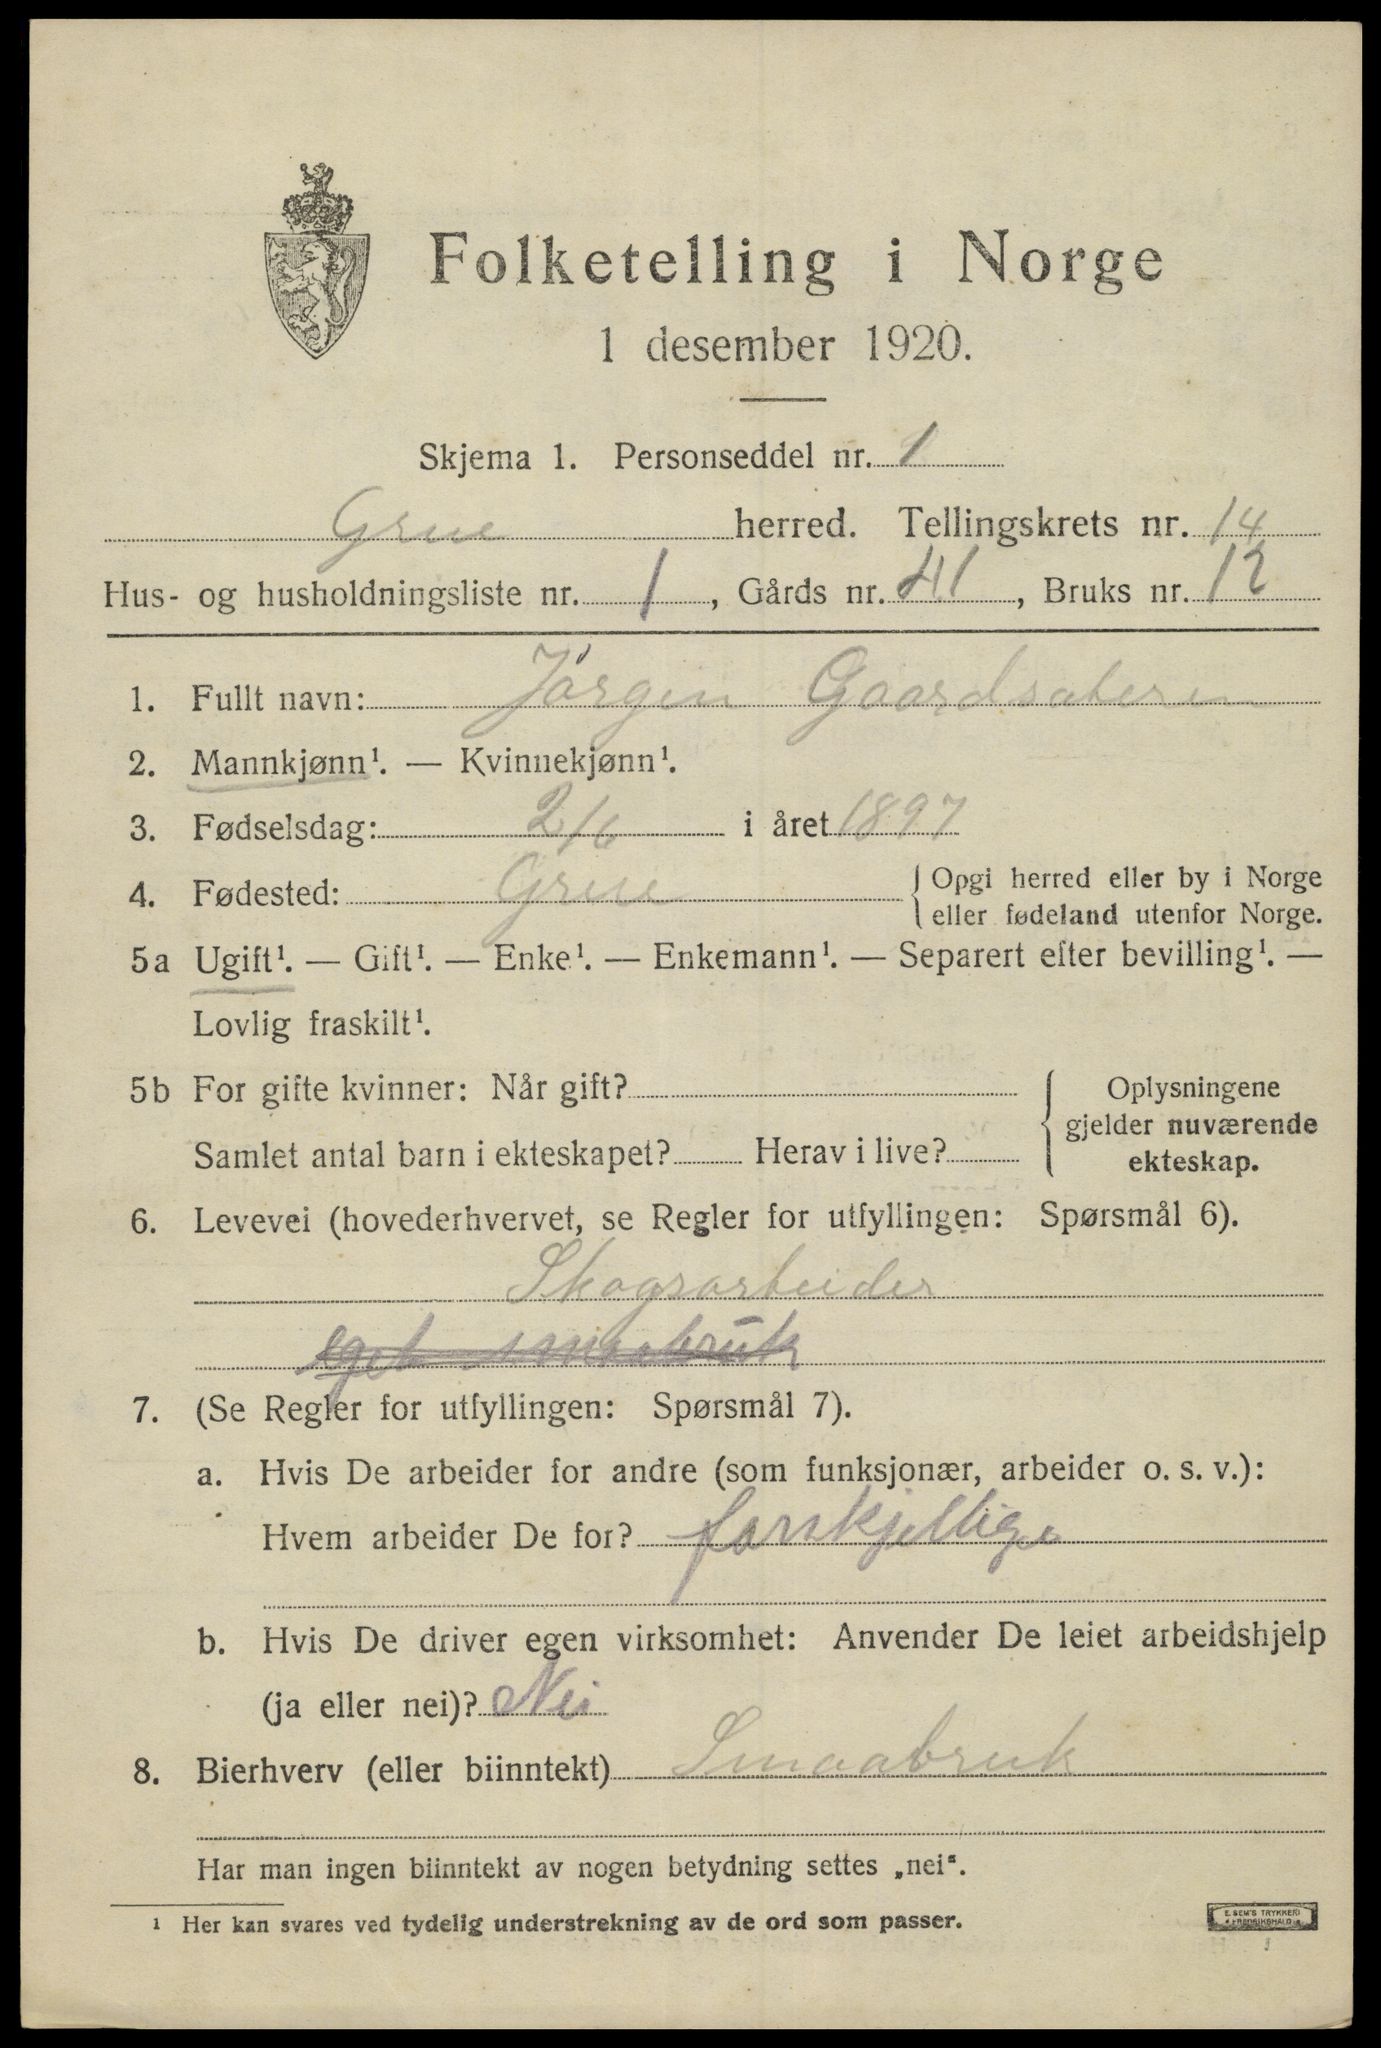 Folketelling i Norge
1 desember 1920.
Skjema 1. Personseddel nr. 1
Grue herred. Tellingskrets nr. 14
Hus- og husholdningsliste nr. 1, Gårds nr. 41, Bruks nr. 12
1. Fullt navn: Jörgen Gaardsæteren
2. Mannkjønn¹. — Kvinnekjønn¹.
3. Fødselsdag: 2/6 i året 1897
4. Fødested: Grue { Opgi herred eller by i Norge
eller fødeland utenfor Norge.
5a Ugift¹. — Gift¹. — Enke¹. — Enkemann¹. — Separert efter bevilling¹. —
Lovlig fraskilt¹.
5b For gifte kvinner: Når gift? { Oplysningene
gjelder nuværende
Samlet antal barn i ekteskapet? Herav i live? ekteskap.
6. Levevei (hovederhvervet, se Regler for utfyllingen: Spørsmål 6).
Skogsarbeider
eget smaabruk
7. (Se Regler for utfyllingen: Spørsmål 7).
a. Hvis De arbeider for andre (som funksjonær, arbeider o. s. v.):
Hvem arbeider De for? forskjellige
b. Hvis De driver egen virksomhet: Anvender De leiet arbeidshjelp
(ja eller nei)? Nei
8. Bierhverv (eller biinntekt) Smaabruk
Har man ingen biinntekt av nogen betydning settes „nei“.
¹ Her kan svares ved tydelig understrekning av de ord som passer.
E. SEM'S TRYKKERI
FREDRIKSHALD